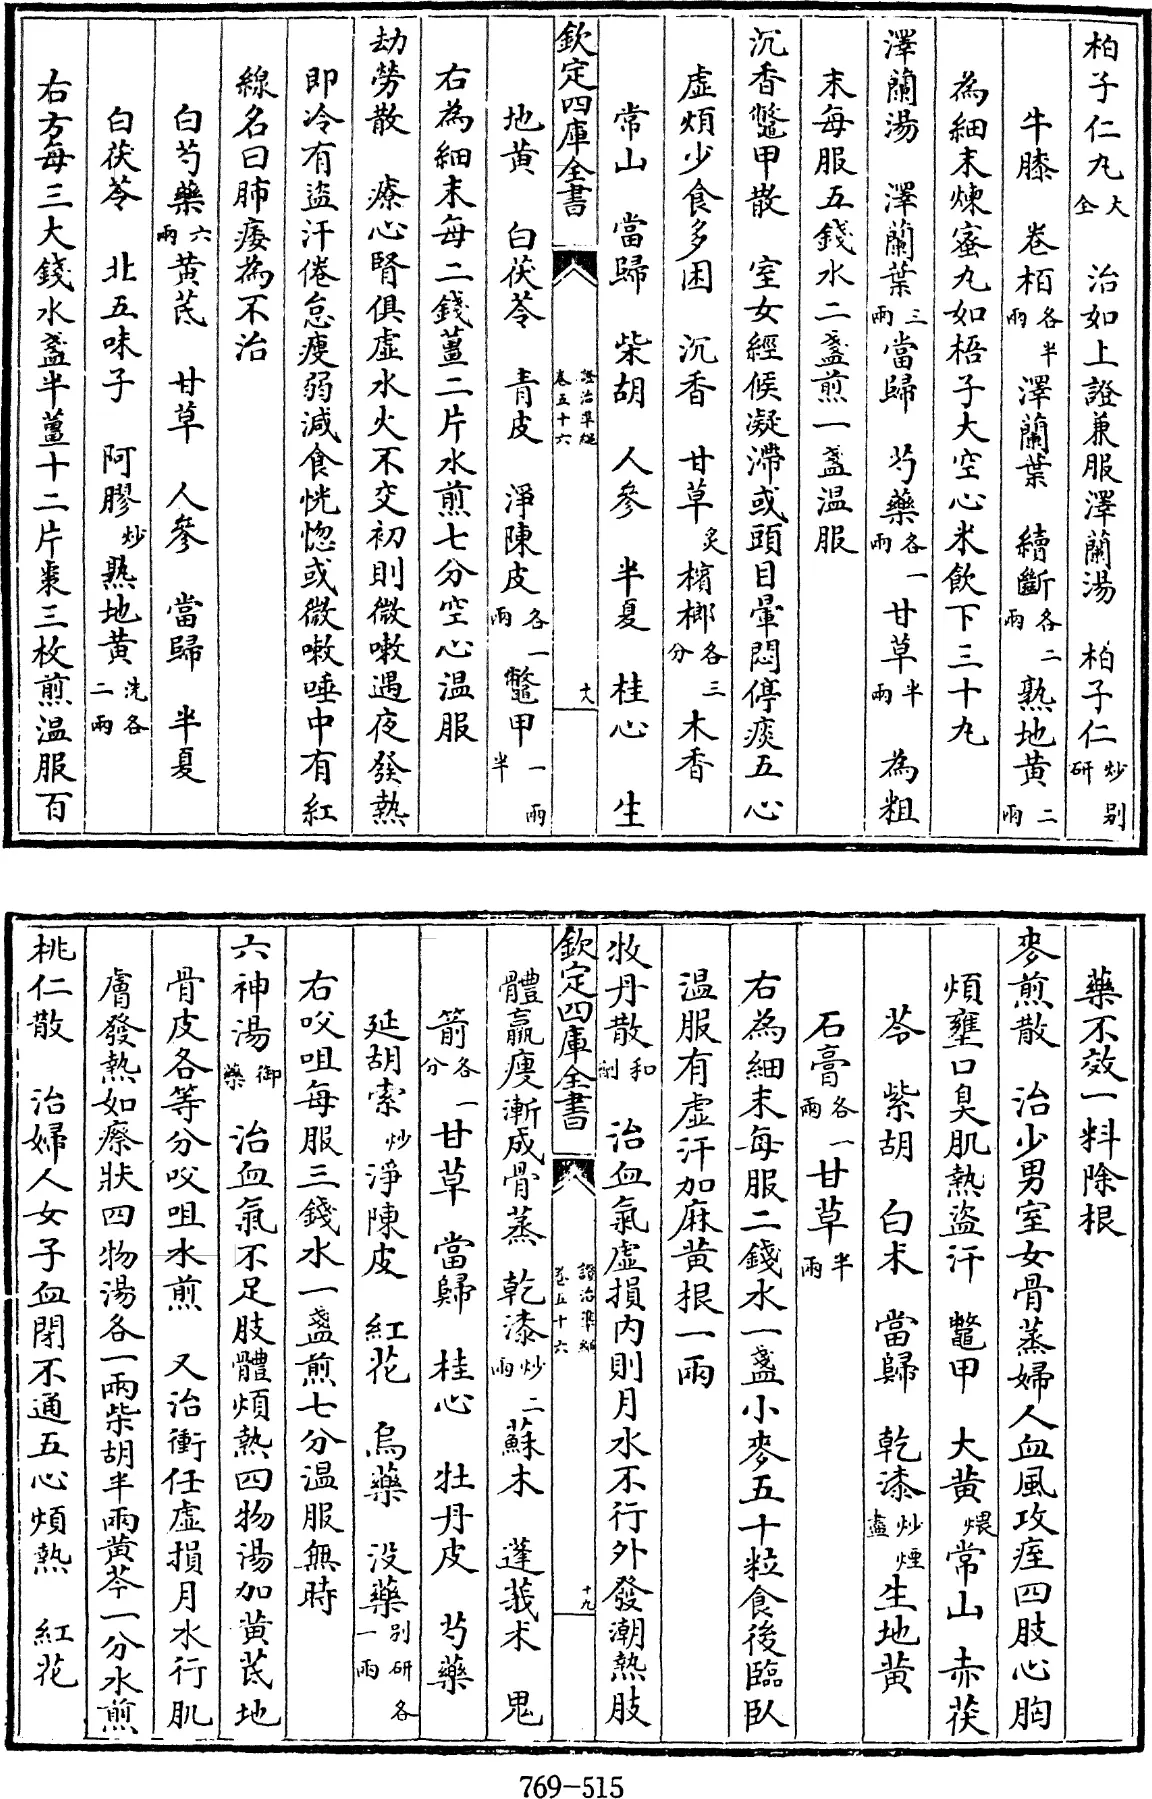 柏子仁丸大全 治如上證兼服澤蘭湯 柏子仁炒别研
牛膝 卷栢各半兩 澤蘭葉 續斷各二兩 熟地黄二兩
為細末煉蜜丸如梧子大空心米飲下三十丸
澤蘭湯 澤蘭葉三兩 當歸 芍藥各一兩 甘草半兩 為粗
末每服五錢水二盞煎一盞温服
沉香鼈甲散 室女經候凝滯或頭目暈悶停痰五心
虚煩少食多困 沉香 甘草炙 檳榔各三分 木香
常山 當歸 柴胡 人參 半夏 桂心 生
欽定四庫全書 證治準繩卷五十六 十八
地黄 白茯苓 青皮 淨陳皮各一兩 鼈甲一兩半
右為細末每二錢薑二片水煎七分空心温服
劫勞散 療心腎俱虚水火不交初則微嗽遇夜發熱
即冷有盜汗倦怠瘦弱減食恍惚或微嗽唾中有紅
線名曰肺痿為不治
白芍藥六兩 黄芪 甘草 人參 當歸 半夏
白茯苓 北五味子 阿膠炒 熟地黄洗各二兩
右方每三大錢水盞半薑十二片棗三枚煎温服百
藥不效一料除根
麥煎散 治少男室女骨蒸婦人血風攻疰四肢心胸
煩壅口臭肌熱盜汗 鼈甲 大黄煨 常山 赤茯
苓 紫胡 白术 當歸 乾漆炒煙盡 生地黄
石膏各一兩 甘草半兩
右為細末每服二錢水一盞小麥五十粒食後臨臥
温服有虚汗加麻黄根一兩
牧丹散和劑 治血氣虚損内則月水不行外發潮熱肢
欽定四庫全書 證治準繩卷五十六 十九
體羸瘦漸成骨蒸 乾漆炒二兩 蘇木 蓬莪术 鬼
箭各一分 甘草 當歸 桂心 牡丹皮 芍藥
延胡索炒 淨陳皮 紅花 烏藥 没藥别研各一兩
右㕮咀每服三錢水一盞煎七分温服無時
六神湯御藥 治血氣不足肢體煩熱四物湯加黄芪地
骨皮各等分㕮咀水煎 又治衝任虚損月水行肌
膚發熱如瘵狀四物湯各一兩柴胡半兩黄芩一分水煎
桃仁散 治婦人女子血閉不通五心煩熱 紅花
769-515